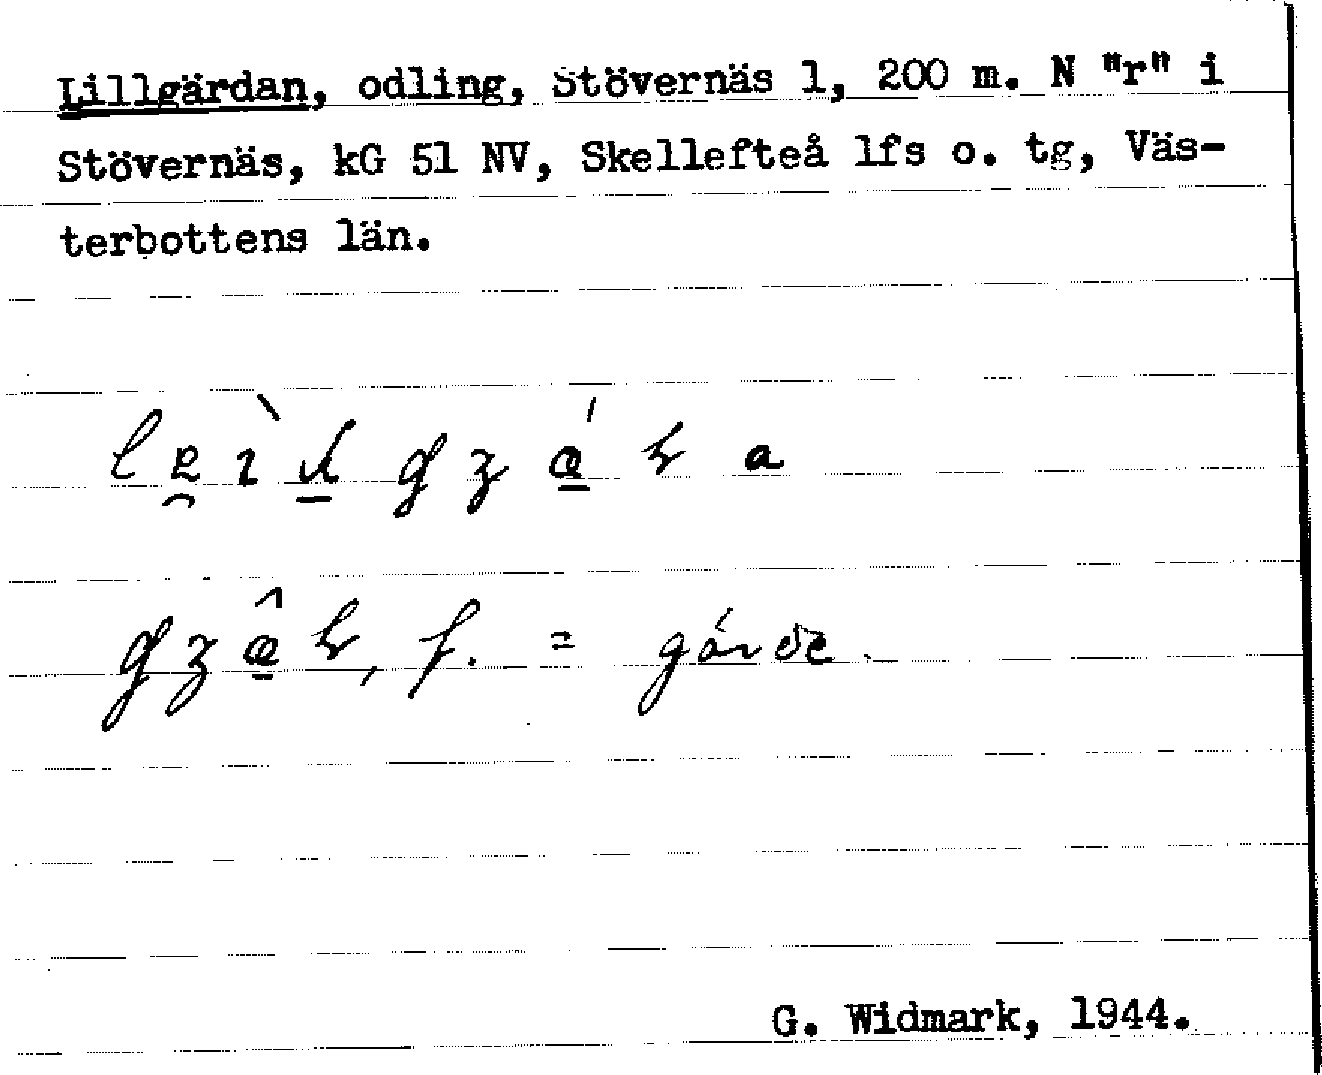 Lillgärdan, odling, Stövernäs 1, 200 m. N "r" i
Stövernäs, kG 51 NV, Skellefteå lfs o. tg, Väs-
terbottens län.
f. = gärde.
G. Widmark, 1944.